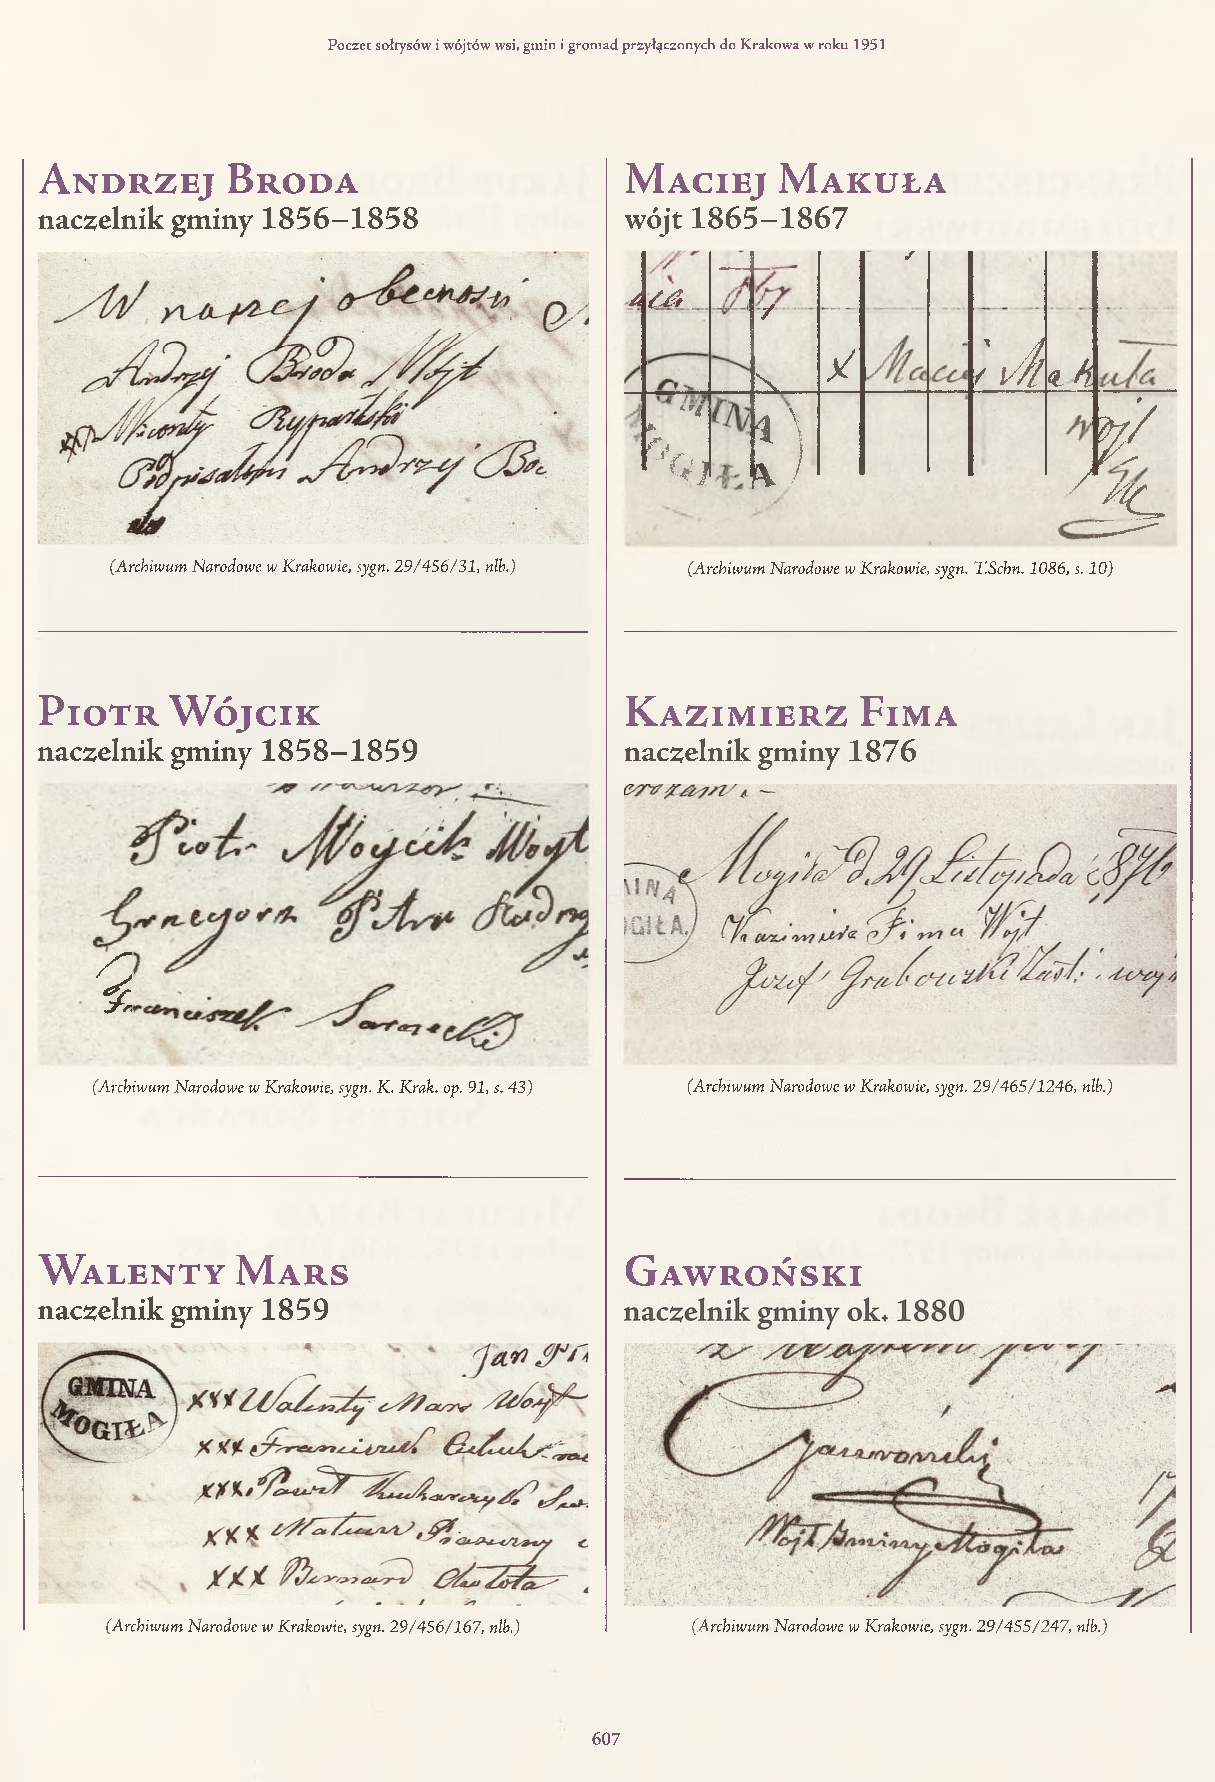 Poczet sołtysów i wójtów wsi, gmin i gromad przyłączonych do Krakowa w roku 1951
Andrzej Broda
naczelnik gminy 1856–1858
W naszej obecnosci
Andrzej Broda Wojt
Podpisałem Andrzej
(Archiwum Narodowe w Krakowie, sygn. 29/456/31, nlb.)
Piotr Wójcik
naczelnik gminy 1858–1859
Piotr Woycik Woyt
Grzegorz
Franciszek
(Archiwum Narodowe w Krakowie, sygn. K. Krak. op. 91, s. 43)
Walenty Mars
naczelnik gminy 1859
Jan
GMINA
MOGIŁA
xxx Walenty Mars Woyt
xxx Franciszek
xxx Paweł Kucharczyk
xxx Mateusz
xxx Bernard
(Archiwum Narodowe w Krakowie, sygn. 29/456/167, nlb.)
Maciej Makuła
wójt 1865–1867
nia 867
GMINA
MOGIŁA
x Maciej Makuła
wójt
(Archiwum Narodowe w Krakowie, sygn. T.Schn. 1086, s. 10)
Kazimierz Fima
naczelnik gminy 1876
MINA
OGIŁA.
Mogiła d. 29 Listopada 1876
Kazimierz Fima Wójt
Jozef Grabowski Zast. wój
(Archiwum Narodowe w Krakowie, sygn. 29/465/1246, nlb.)
Gawroński
naczelnik gminy ok. 1880
Gawroński
Wójt Gminy Mogiła
(Archiwum Narodowe w Krakowie, sygn. 29/455/247, nlb.)
607